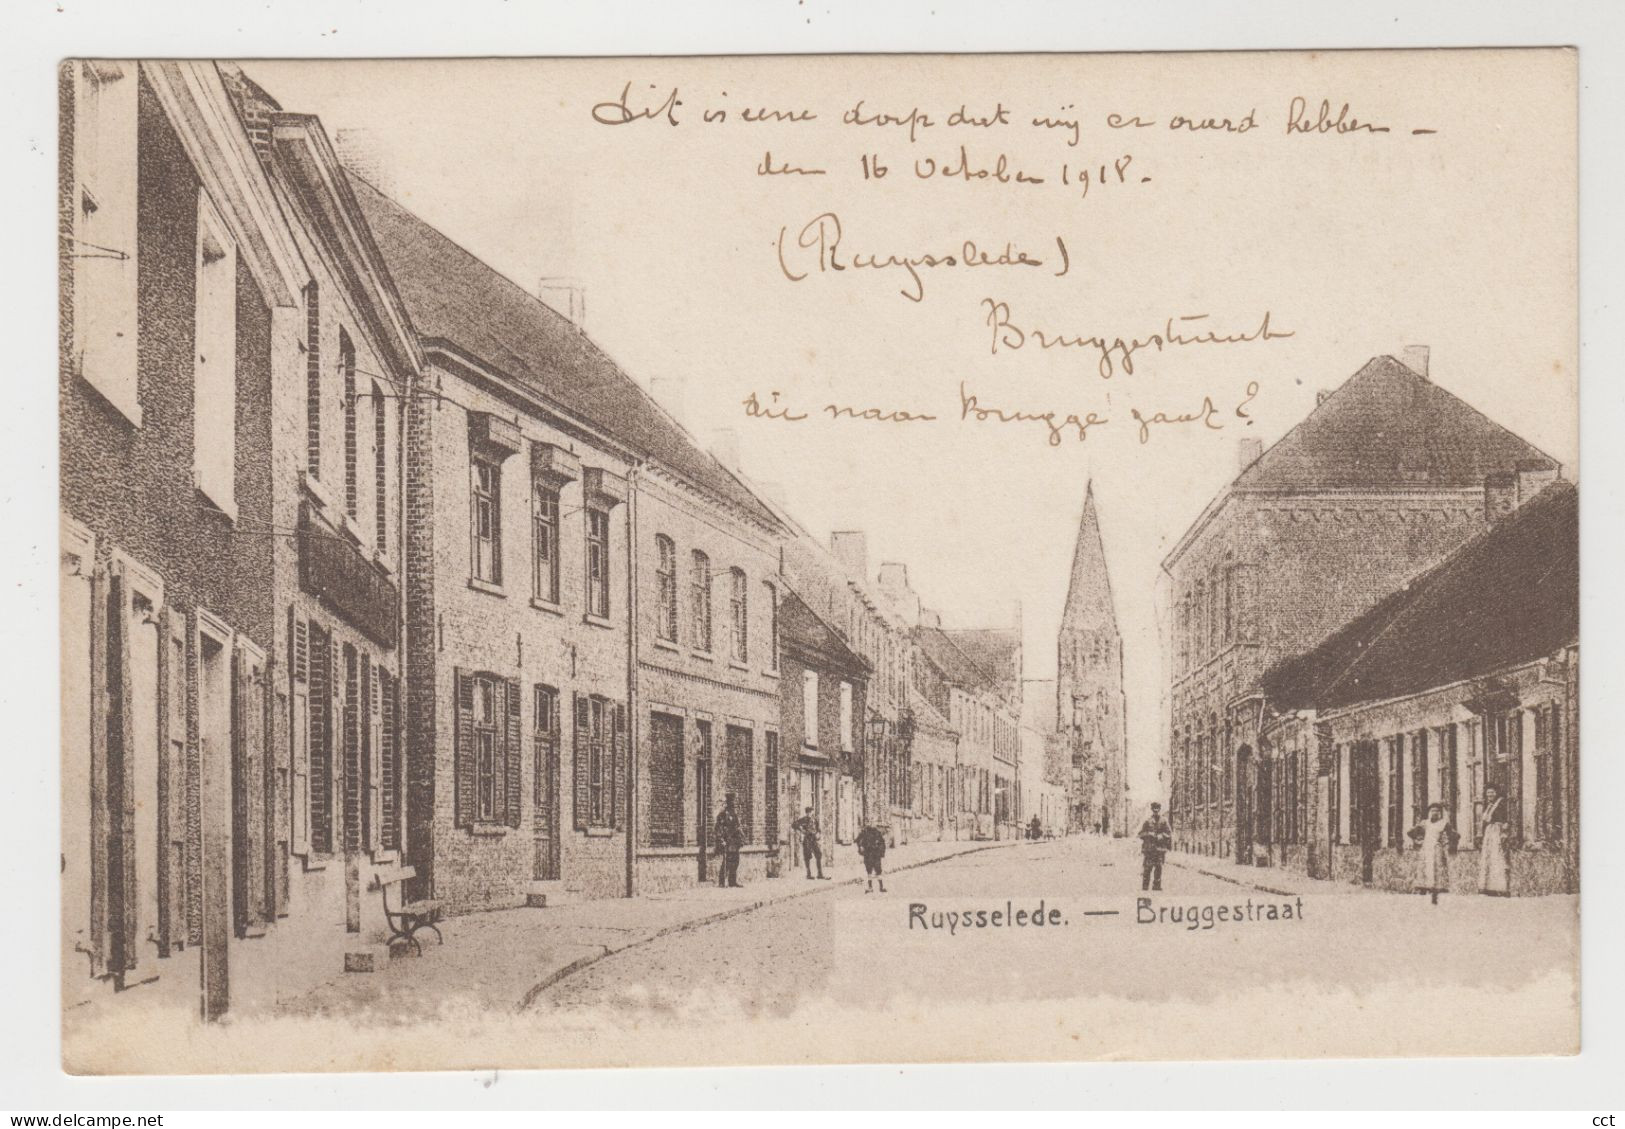 Dit is eene dorp dat wij er overd hebben -
den 16 October 1918.
(Ruysslede)
Bruggestraat
die naar Brugge gaat?
Ruysselede. — Bruggestraat
https://www.delcampe.net
cct